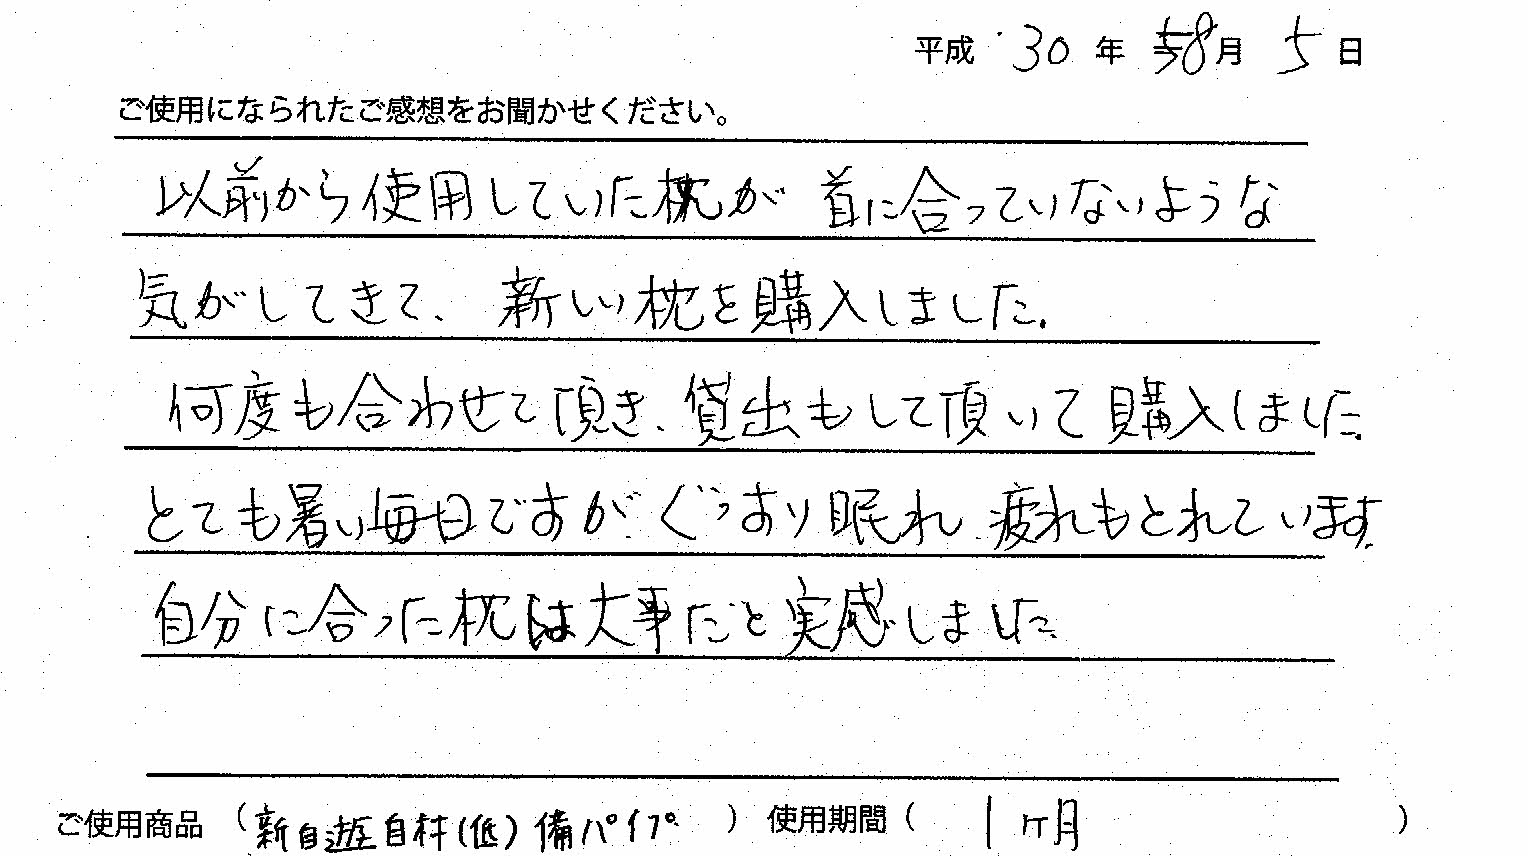 平成 30 年 8月 5 日
ご使用になられたご感想をお聞かせください。
以前から使用していた枕が 首に合っていないような
気がしてきて、新しい枕を購入しました.
何度も合わせて頂き、貸出もして頂いて購入しました.
とても暑い毎日ですが ぐっすり眠れ 疲れもとれています.
自分に合った枕は大事だと実感しました.
ご使用商品 (新自遊自材(低) 備パイプ ) 使用期間( 1ヶ月 )